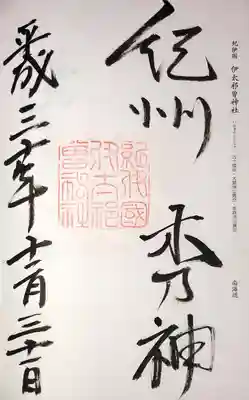 紀伊國 伊太祁曽神社
南海道
紀州 木乃神
紀伊國
伊太祁
曽神社
平成三十年十二月三十一日